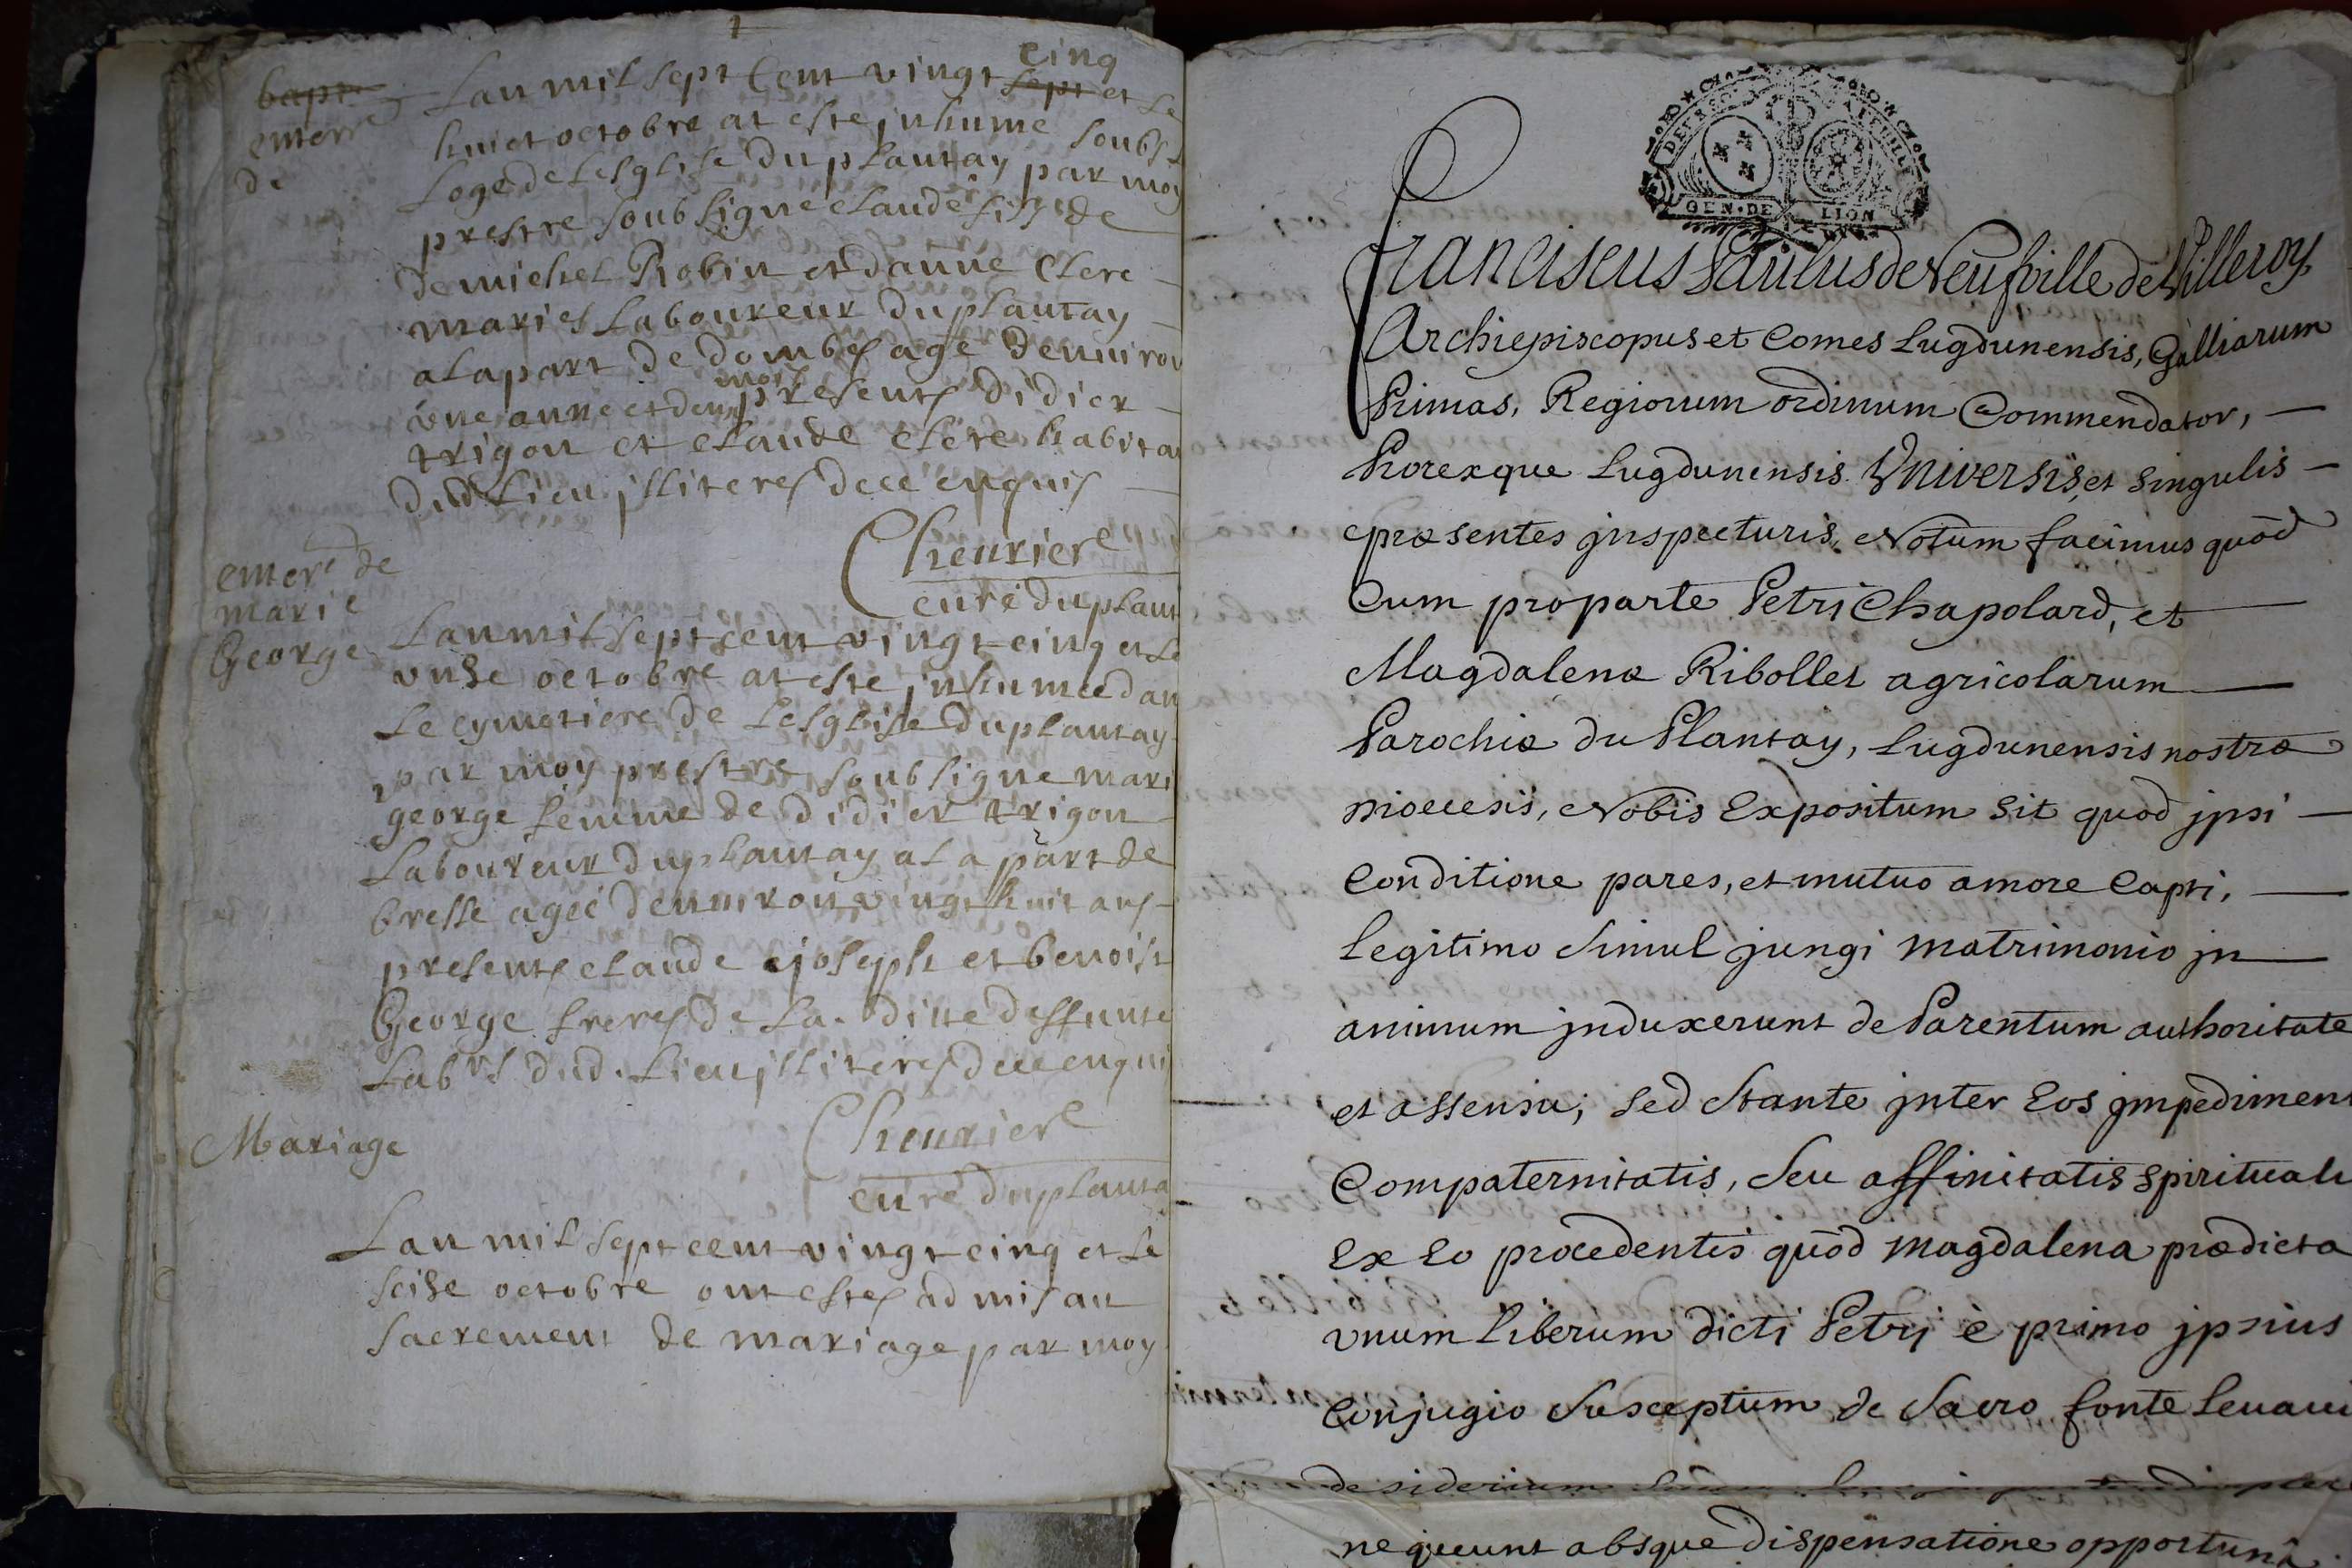 bapt
enterré
de
Lan mil sept Cent vingt sept cinq et Le
huict octobre at esté jnhumé soubs L
Loge de Lesglise du plantay par moy
prestre soubsigné claude fils de
de michel Robin et danne Clere
mariés Laboureur du plantay
a la part de dombes agé denviron
une anne et demy mois presents didier
trigon et claude clere habitan
dud Lieu jlliteres de ce enquis
Cheuriere
curé du plant
enteré de
marie
George
Lan mil sept cent vingt cinq et Le
unse octobre at esté jnhumee dan
Le cymetiere de Lesglise du plantay
par moy prestre soubsigne mari
george femme de didier trigon
Laboureur du plantay a la part de
bresse agée denviron vingt huit ans
presents claude joseph et benoist
George freres de La ditte deffunte
Labrs dud. Lieu jlliteres de ce enqui
Cheuriere
curé du planta
Mariage
Lan mil sept cent vingt cinq et Le
seise octobre ont estes admis au
sacrement de mariage par moy
GEN·DE LION
Franciscus Paulus de Neufville de Villeroy
Archiepiscopus et Comes Lugdunensis, Galliarum
Primas, Regiorum ordinum Commendator,
Prorexque Lugdunensis. Vniversis, et singulis
præsentes jnspecturis, Notum facimus quòd
Cum pro parte Petri Chapolard, et
Magdalenæ Ribollet agricolarum
Parochiæ du Plantay, Lugdunensis nostræ
Diœcesis, Nobis Expositum sit quod jpsi
Conditione pares, et mutuo amore Capti,
Legitimo Simul jungi matrimonio jn
animum jnduxerunt de Parentum authoritate
et assensu; sed Stante jnter Eos jmpediment
Compaternitatis, Seu affinitatis spirituali
Ex Eo procedentis quòd Magdalena prædicta
vnum Liberum dicti Petri è primo jpsius
Conjugio Susceptum de Sacro fonte Levavi
desiderium
nequeunt absque Dispensatione opportunâ